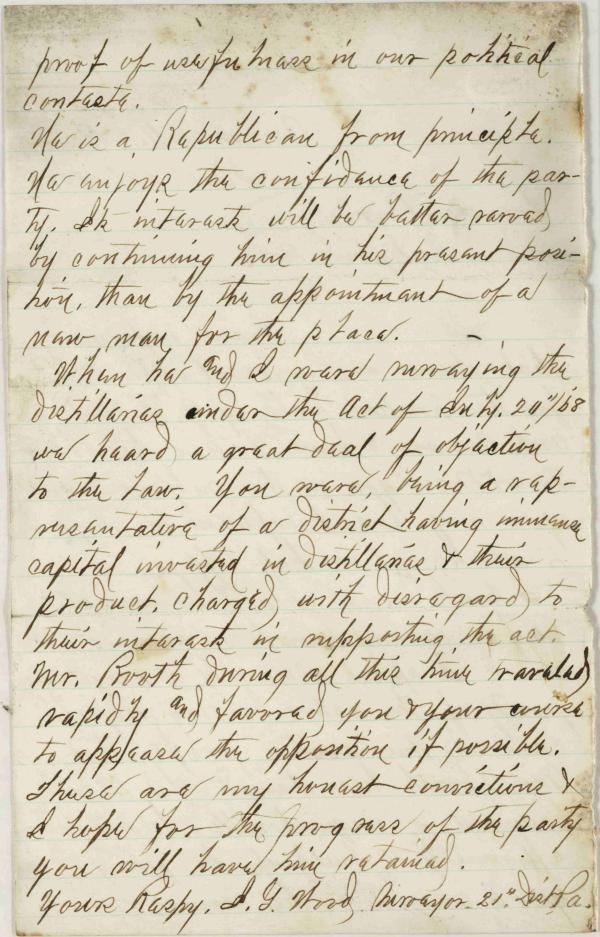 proof of usefulness in our political
contests.
He is a Republican from principle.
He enjoys the confidence of the par-
ty. Its interests will be better served
by continuing him in his present posi-
tion, than by the appointment of a
new man for the place.
When he and I were surveying the
distilleries under the Act of July. 20"/68
we heard a great deal of objection
to the Law. You were, being a rep-
resentative of a district having immense
capital invested in distilleries & their
product, charged with disregard to
their interests in supporting the act.
Mr. Booth during all this time traveled
rapidly and favored you & your course
to appease the opposition if possible.
These are my honest convictions &
I hope for the progress of the party
you will have him retained.
Yours Respy. Wood, Surveyor. 21" Dist. Pa.